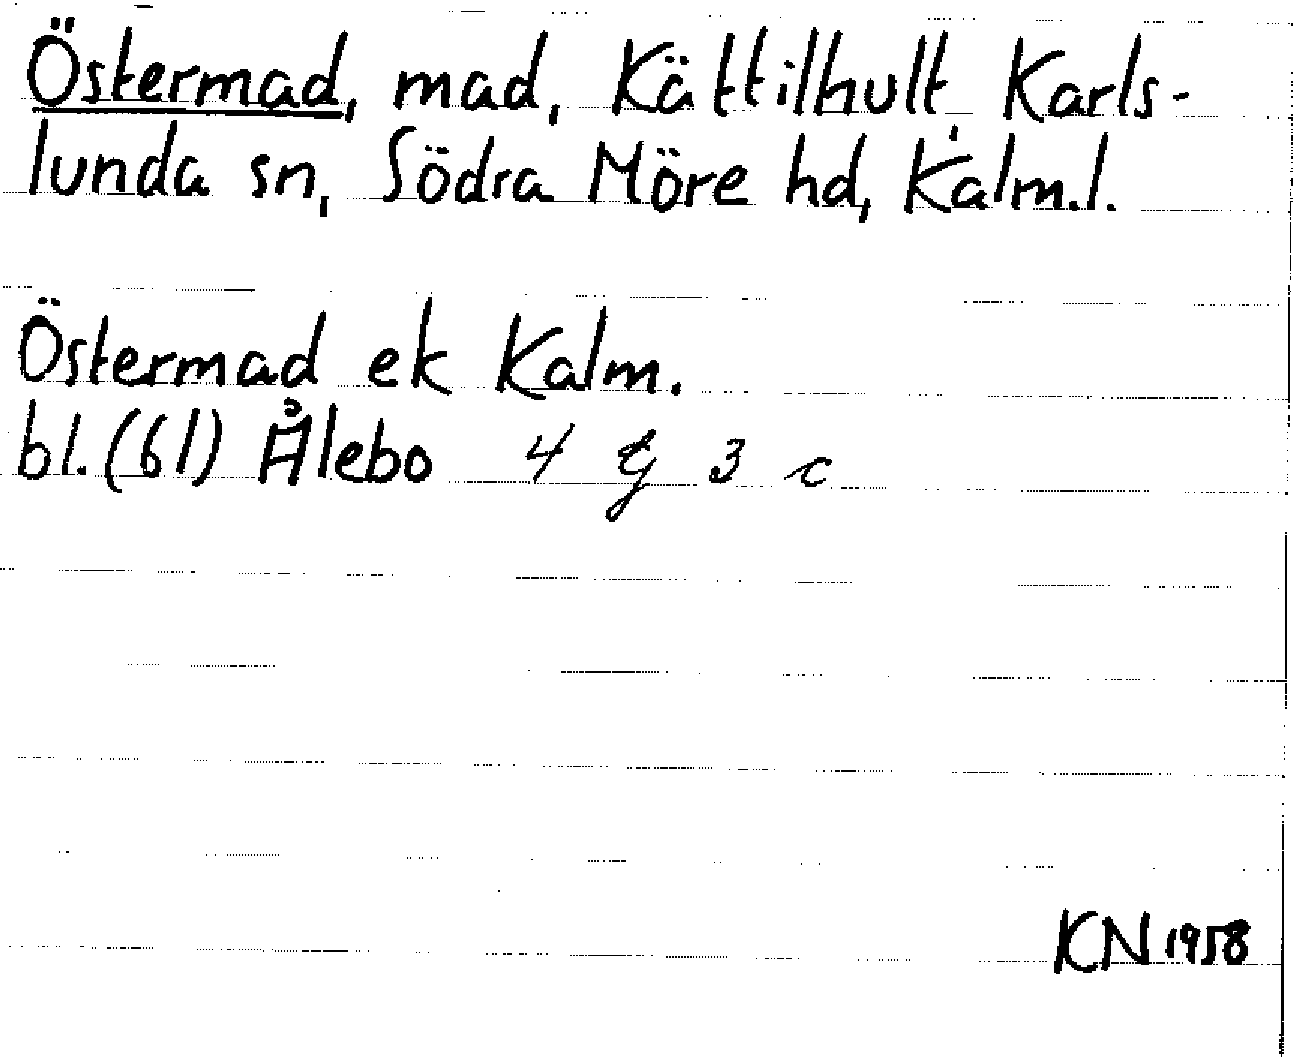 Östermad, mad, Kättilhult, Karls-
lunda sn, Södra Möre hd, Kalm.l.
Östermad ek Kalm.
bl. (61) Ålebo 4 g 3 c
KN 1958